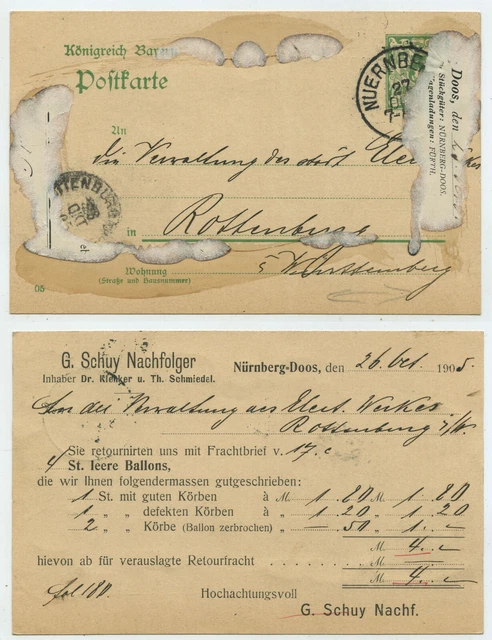 Königreich Bayern
Postkarte
NUERNBE
27
Doos, den
Stückgüter: NÜRNBERG-DOOS.
Wagenladungen: FÜRTH.
An
die Verwaltung des städt. Elect
TTENBURG
in Rottenburg
Wohnung
(Straße und Hausnummer)
a/ Württemberg
05
G. Schuy Nachfolger
Inhaber Dr. Klenker u. Th. Schmiedel.
Nürnberg-Doos, den 26. Oct. 1905.
An die Verwaltung des Elect. Werkes
Rottenburg a/N.
Sie retournirten uns mit Frachtbrief v. 17. c
4 St. leere Ballons,
die wir Ihnen folgendermassen gutgeschrieben:
1 St. mit guten Körben à M 1.80 M 1.80
1 „ „ defekten Körben „ „ 1.20 „ 1.20
2 „ Körbe (Ballon zerbrochen) „ „ –.50 „ 1.–
M 4.–
hievon ab für verauslagte Retourfracht „
M 4.–
fol 180
Hochachtungsvoll
G. Schuy Nachf.